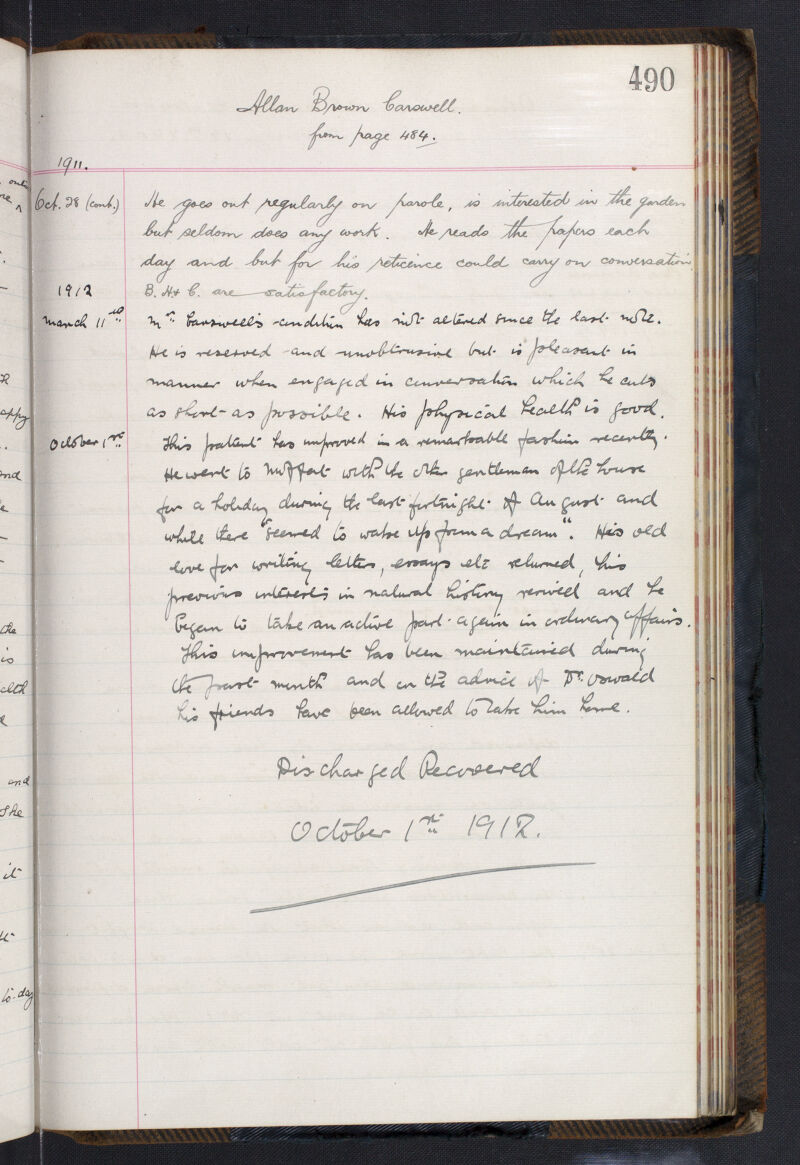 490
Allan Brown Carswell.
from page 484.
1911.
Oct. 28 (cont.) He goes out regularly on parole, is interested in the garden
but seldom does any work. He reads the papers each
day and but for his reticence could carry on conversation.
1912 B. & C. are satisfactory.
March 11th Mr. Carswell's condition has not altered since the last note.
He is reserved and unobtrusive but is pleasant in
manner when engaged in conversation which he cuts
as short as possible. His physical health is good.
October 1st This patient has improved in a remarkable fashion recently.
He went to Moffat with the other gentleman of the house
for a holiday during the last fortnight of August and
while there "seemed to wake up from a dream". His old
love for writing letters, essays etc returned, his
previous interests in natural history revived and he
began to take an active part again in ordinary affairs.
This improvement has been maintained during
the past month and on the advice of Dr. Oswald
his friends have been allowed to take him home.
Discharged Recovered
October 1st 1912.